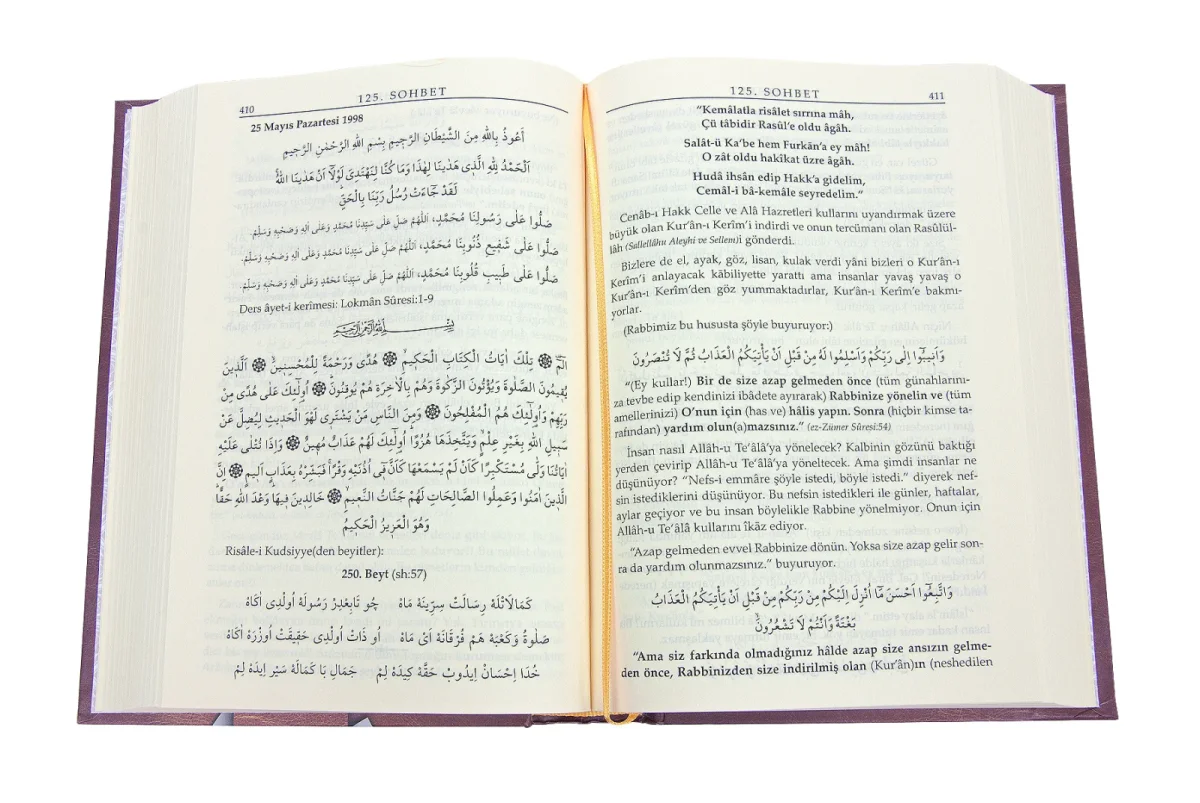 410
125. SOHBET
25 Mayıs Pazartesi 1998
أَعُوذُ بِاللهِ مِنَ الشَّيْطَانِ الرَّجِيمِ بِسْمِ اللهِ الرَّحْمٰنِ الرَّحِيمِ
اَلْحَمْدُ لِلّٰهِ الَّذِى هَدٰينَا لِهٰذَا وَمَا كُنَّا لِنَهْتَدِىَ لَوْلَٓا اَنْ هَدٰينَا اللهُ
لَقَدْ جَٓاءَتْ رُسُلُ رَبِّنَا بِالْحَقِّ
صَلُّوا عَلٰى رَسُولِنَا مُحَمَّدٍ، اَللّٰهُمَّ صَلِّ عَلٰى سَيِّدِنَا مُحَمَّدٍ وَعَلٰى اٰلِهِ وَصَحْبِهِ وَسَلِّمْ.
صَلُّوا عَلٰى شَفِيعِ ذُنُوبِنَا مُحَمَّدٍ، اَللّٰهُمَّ صَلِّ عَلٰى سَيِّدِنَا مُحَمَّدٍ وَعَلٰى اٰلِهِ وَصَحْبِهِ وَسَلِّمْ.
صَلُّوا عَلٰى طَبِيبِ قُلُوبِنَا مُحَمَّدٍ، اَللّٰهُمَّ صَلِّ عَلٰى سَيِّدِنَا مُحَمَّدٍ وَعَلٰى اٰلِهِ وَصَحْبِهِ وَسَلِّمْ.
Ders âyet-i kerîmesi: Lokmân Sûresi:1-9
بِسْمِ اللهِ الرَّحْمٰنِ الرَّحِيمِ
الٓمٓ ۞ تِلْكَ اٰيَاتُ الْكِتَابِ الْحَكِيمِ ۞ هُدًى وَرَحْمَةً لِلْمُحْسِنِينَ ۞ اَلَّذِينَ
يُقِيمُونَ الصَّلٰوةَ وَيُؤْتُونَ الزَّكٰوةَ وَهُمْ بِالْاٰخِرَةِ هُمْ يُوقِنُونَ ۞ اُولٰٓئِكَ عَلٰى هُدًى مِنْ
رَبِّهِمْ وَاُولٰٓئِكَ هُمُ الْمُفْلِحُونَ ۞ وَمِنَ النَّاسِ مَنْ يَشْتَرِى لَهْوَ الْحَدِيثِ لِيُضِلَّ عَنْ
سَبِيلِ اللهِ بِغَيْرِ عِلْمٍ وَيَتَّخِذَهَا هُزُوًا اُولٰٓئِكَ لَهُمْ عَذَابٌ مُهِينٌ ۞ وَاِذَا تُتْلٰى عَلَيْهِ
اٰيَاتُنَا وَلّٰى مُسْتَكْبِرًا كَاَنْ لَمْ يَسْمَعْهَا كَاَنَّ فِٓى اُذُنَيْهِ وَقْرًا فَبَشِّرْهُ بِعَذَابٍ اَلِيمٍ ۞ اِنَّ
الَّذِينَ اٰمَنُوا وَعَمِلُوا الصَّالِحَاتِ لَهُمْ جَنَّاتُ النَّعِيمِ ۞ خَالِدِينَ فِيهَا وَعْدَ اللهِ حَقًّا
وَهُوَ الْعَزِيزُ الْحَكِيمُ
Risâle-i Kudsiyye(den beyitler):
250. Beyt (sh:57)
كَمَالَاتْلَهْ رِسَالَتْ سِرِّينَهْ مَاهْ چُو تَابِعْدِرْ رَسُولَهْ اُولْدِى اٰكَاهْ
صَلٰوةُ وَكَعْبَهْ هَمْ فُرْقَانَهْ اَىْ مَاهْ او ذَاتْ اُولْدِى حَقِيقَتْ اُوزْرَهْ اٰكَاهْ
خُدَا اِحْسَانْ اِيدُوبْ حَقَّهْ كِيدَهْ لِمْ جَمَالِ بَا كَمَالَهْ سَيْرْ اِيدَهْ لِمْ
125. SOHBET
411
"Kemâlatla risâlet sırrına mâh,
Çü tâbidir Rasûl'e oldu âgâh.
Salât-ü Ka'be hem Furkân'a ey mâh!
O zât oldu hakîkat üzre âgâh.
Hudâ ihsân edip Hakk'a gidelim,
Cemâl-i bâ-kemâle seyredelim."
Cenâb-ı Hakk Celle ve Alâ Hazretleri kullarını uyandırmak üzere
büyük olan Kur'ân-ı Kerîm'i indirdi ve onun tercümanı olan Rasûlül-
lâh (Sallellâhu Aleyhi ve Sellem)i gönderdi.
Bizlere de el, ayak, göz, lisan, kulak verdi yâni bizleri o Kur'ân-ı
Kerîm'i anlayacak kâbiliyette yarattı ama insanlar yavaş yavaş o
Kur'ân-ı Kerîm'den göz yummaktadırlar, Kur'ân-ı Kerîm'e bakmı-
yorlar.
(Rabbimiz bu hususta şöyle buyuruyor:)
وَاَنِيبُٓوا اِلٰى رَبِّكُمْ وَاَسْلِمُوا لَهُ مِنْ قَبْلِ اَنْ يَأْتِيَكُمُ الْعَذَابُ ثُمَّ لَا تُنْصَرُونَ
"(Ey kullar!) Bir de size azap gelmeden önce (tüm günahlarını-
za tevbe edip kendinizi ibâdete ayırarak) Rabbinize yönelin ve (tüm
amellerinizi) O'nun için (has ve) hâlis yapın. Sonra (hiçbir kimse ta-
rafından) yardım olun(a)mazsınız." (ez-Zümer Sûresi:54)
İnsan nasıl Allâh-u Te'âlâ'ya yönelecek? Kalbinin gözünü baktığı
yerden çevirip Allâh-u Te'âlâ'ya yöneltecek. Ama şimdi insanlar ne
düşünüyor? "Nefs-i emmâre şöyle istedi, böyle istedi." diyerek nef-
sin istediklerini düşünüyor. Bu nefsin istedikleri ile günler, haftalar,
aylar geçiyor ve bu insan böylelikle Rabbine yönelmiyor. Onun için
Allâh-u Te'âlâ kullarını îkâz ediyor.
"Azap gelmeden evvel Rabbinize dönün. Yoksa size azap gelir son-
ra da yardım olunmazsınız." buyuruyor.
وَاتَّبِعُٓوا اَحْسَنَ مَٓا اُنْزِلَ اِلَيْكُمْ مِنْ رَبِّكُمْ مِنْ قَبْلِ اَنْ يَأْتِيَكُمُ الْعَذَابُ
بَغْتَةً وَاَنْتُمْ لَا تَشْعُرُونَ
"Ama siz farkında olmadığınız hâlde azap size ansızın gelme-
den önce, Rabbinizden size indirilmiş olan (Kur'ân)ın (neshedilen